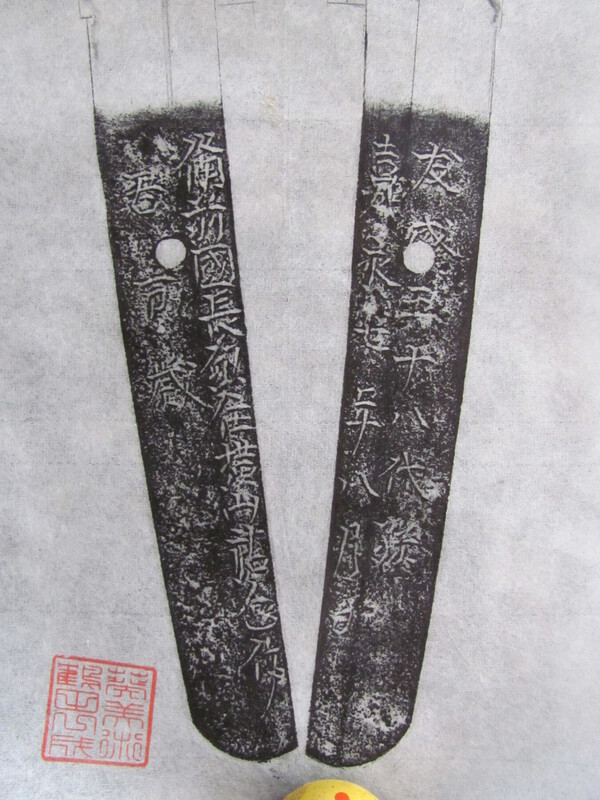 友成五十八代孫
嘉永七年八月日
備前國長船住横山祐包作
君万歳